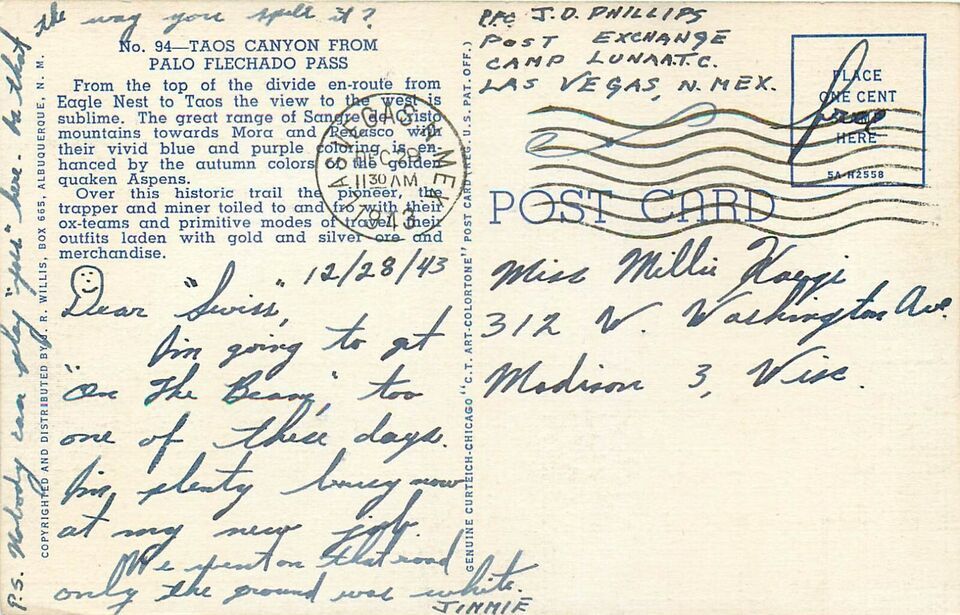 No. 94—TAOS CANYON FROM
PALO FLECHADO PASS
From the top of the divide en-route from
Eagle Nest to Taos the view to the west is
sublime. The great range of Sangre de Cristo
mountains towards Mora and Penasco with
their vivid blue and purple coloring is en-
hanced by the autumn colors of the golden
quaken Aspens.
Over this historic trail the pioneer, the
trapper and miner toiled to and fro with their
ox-teams and primitive modes of travel, their
outfits laden with gold and silver ore and
merchandise.
COPYRIGHTED AND DISTRIBUTED BY J. R. WILLIS, BOX 665, ALBUQUERQUE, N. M.
12/28/43
Dear "Swiss",
I'm going to get
"On The Beam", too
one of these days.
I'm plenty busy now
at my new job.
We went on that road
only the ground was white.
JIMMIE
P.S. Nobody can play "yas" here - is that
the way you spell it?
GENUINE CURTEICH-CHICAGO "C.T. ART-COLORTONE" POST CARD (REG. U.S. PAT. OFF.)
LAS VEGAS, N. MEX.
DEC 29
11 30 AM
1943
PFC J. D. PHILLIPS
POST EXCHANGE
CAMP LUNA A.T.C.
LAS VEGAS, N. MEX.
PLACE
ONE CENT
STAMP
HERE
5A-H2558
free
POST CARD
Miss Millie
312 W. Washington Ave.
Madison 3, Wisc.